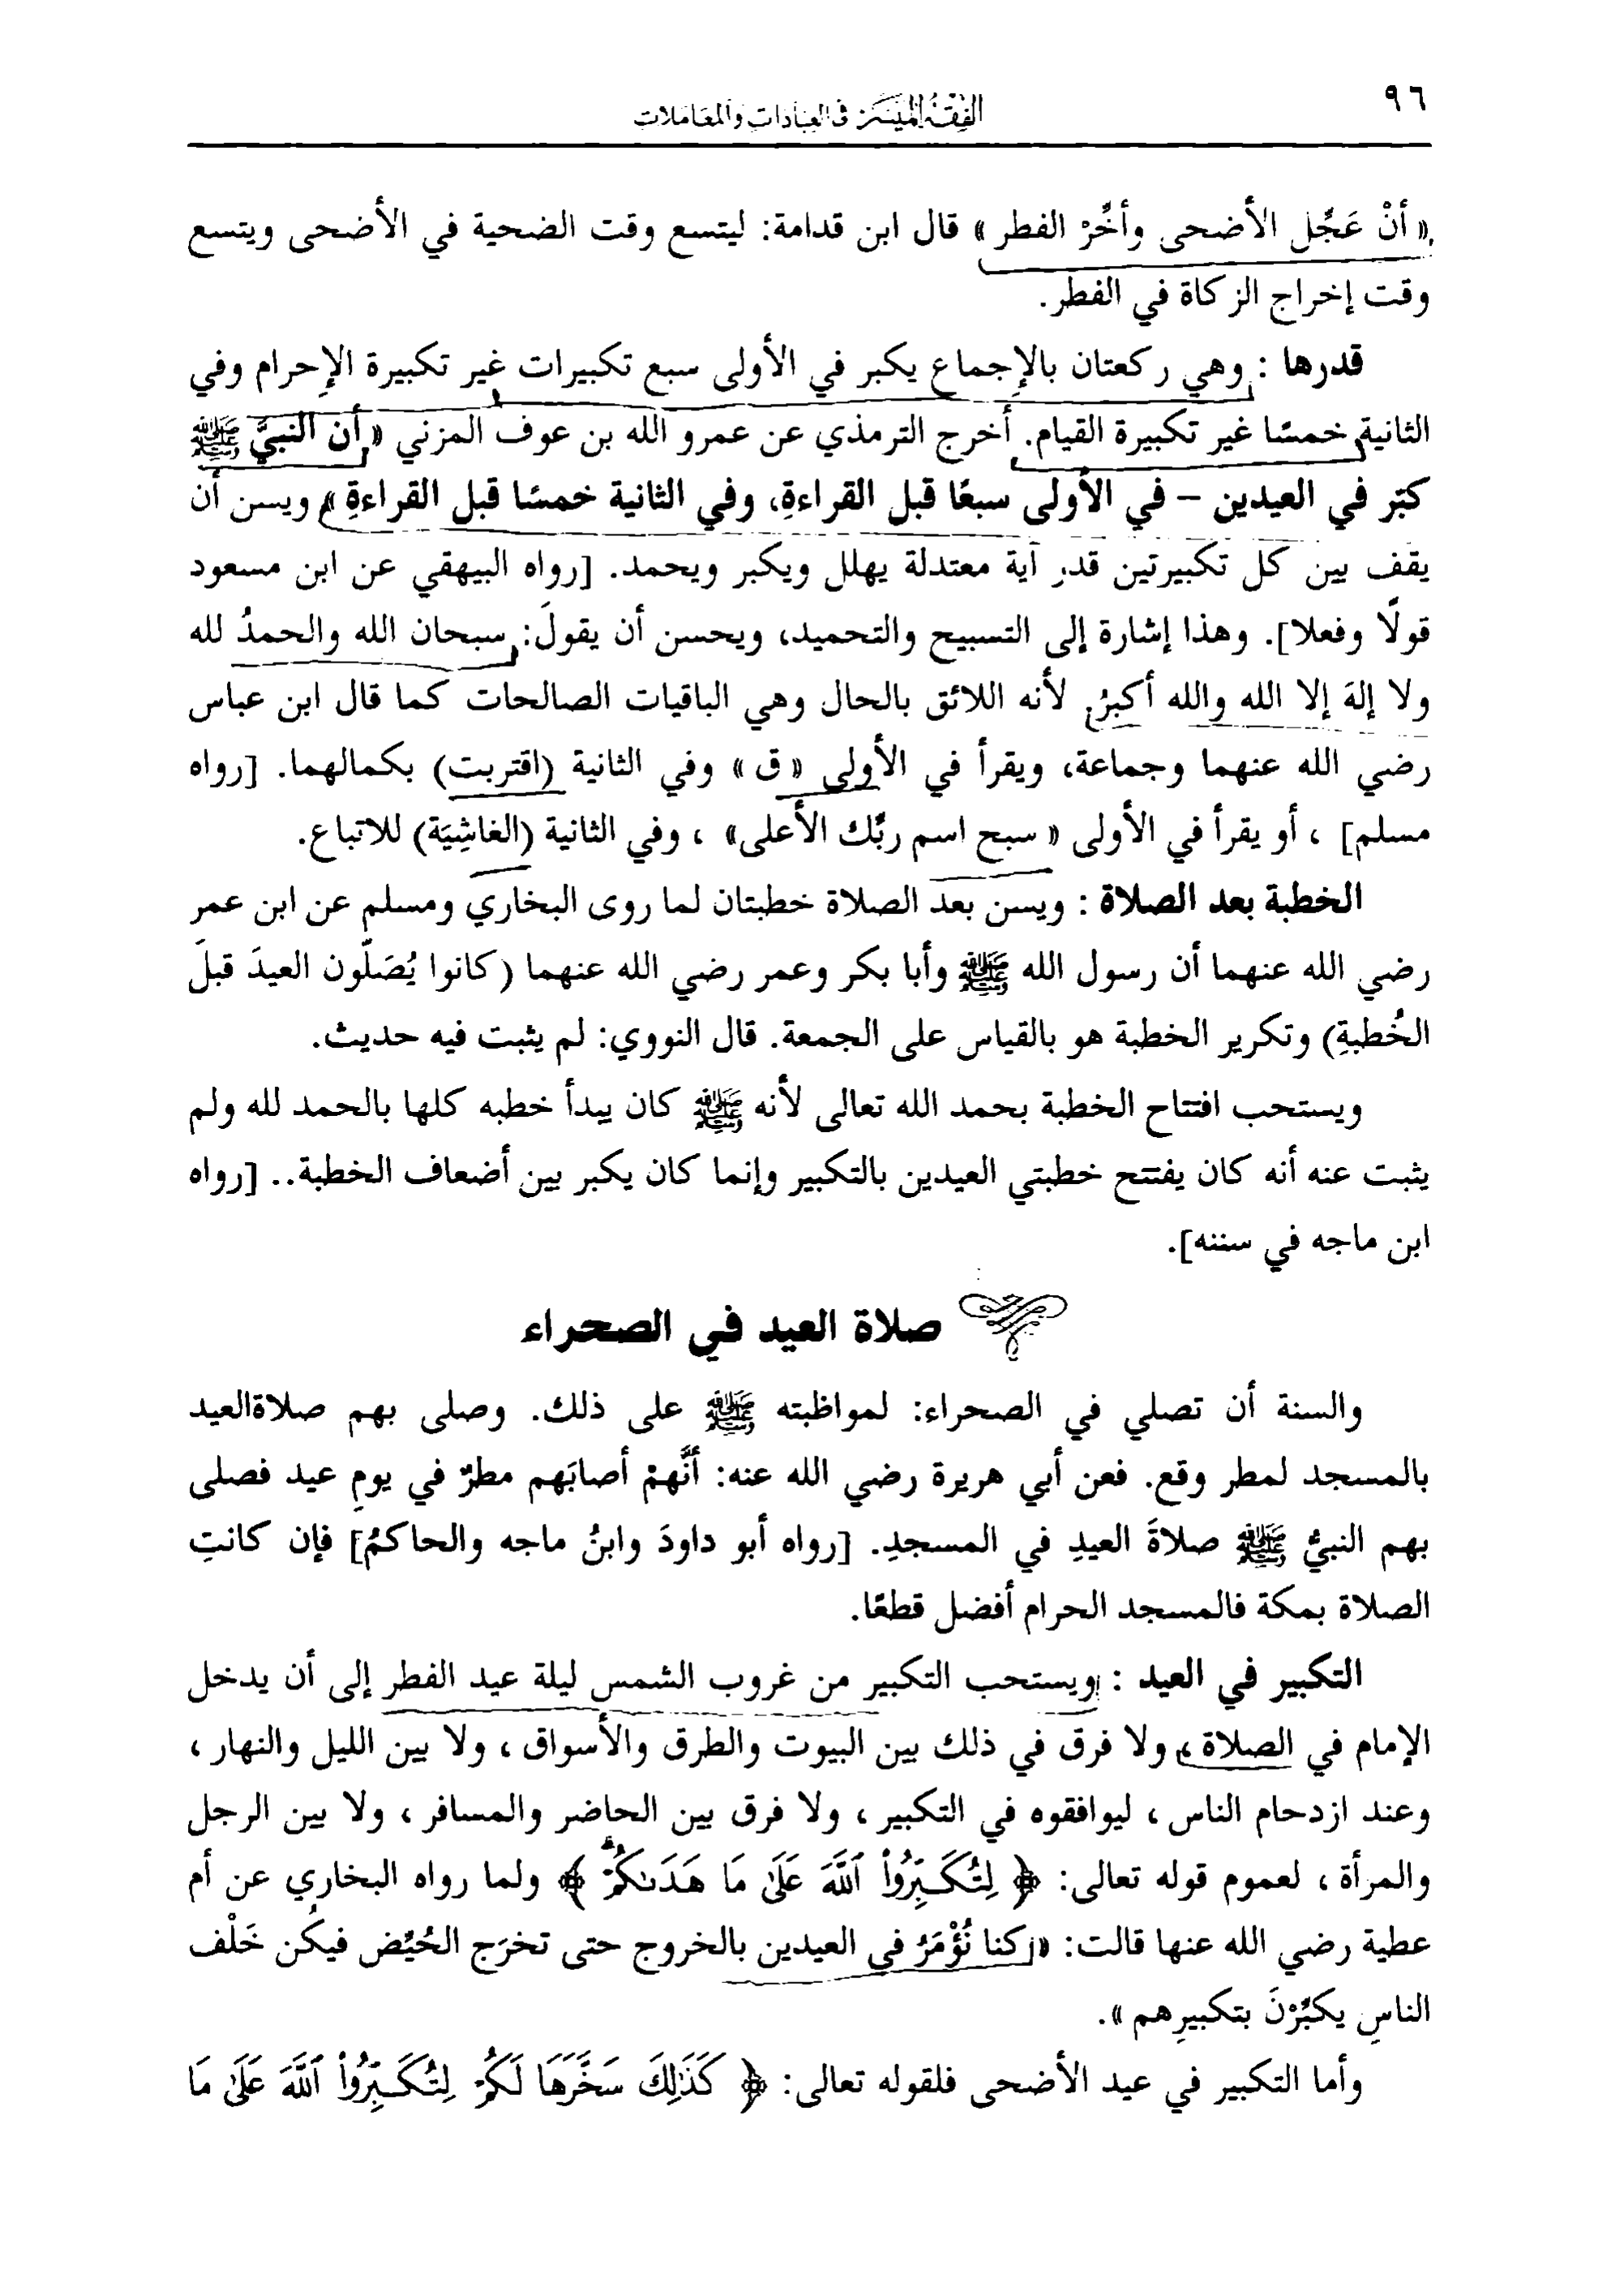 ٩٦
الفقه الميسر في العبادات والمعاملات
« أنْ عَجِّل الأضحى وأخِّرْ الفطر » قال ابن قدامة: ليتسع وقت الضحية في الأضحى ويتسع
وقت إخراج الزكاة في الفطر.
قدرها : وهي ركعتان بالإجماع يكبر في الأولى سبع تكبيرات غير تكبيرة الإحرام وفي
الثانية خمسًا غير تكبيرة القيام. أخرج الترمذي عن عمرو الله بن عوف المزني « أن النبيَّ ﷺ
كبَّر في العيدين – في الأولى سبعًا قبل القراءةِ، وفي الثانية خمسًا قبل القراءةِ » ويسن أن
يقف بين كل تكبيرتين قدر آية معتدلة يهلل ويكبر ويحمد. [رواه البيهقي عن ابن مسعود
قولًا وفعلا]. وهذا إشارة إلى التسبيح والتحميد، ويحسن أن يقولَ: سبحان الله والحمدُ لله
ولا إلهَ إلا الله والله أكبرُ لأنه اللائق بالحال وهي الباقيات الصالحات كما قال ابن عباس
رضي الله عنهما وجماعة، ويقرأ في الأولى « ق » وفي الثانية (اقتربت) بكمالهما. [رواه
مسلم] ، أو يقرأ في الأولى « سبح اسم ربِّك الأعلى» ، وفي الثانية (الغاشِيَة) للاتباع.
الخطبة بعد الصلاة : ويسن بعد الصلاة خطبتان لما روى البخاري ومسلم عن ابن عمر
رضي الله عنهما أن رسول الله ﷺ وأبا بكر وعمر رضي الله عنهما (كانوا يُصَلّون العيدَ قبلَ
الخُطبةِ) وتكرير الخطبة هو بالقياس على الجمعة. قال النووي: لم يثبت فيه حديث.
ويستحب افتتاح الخطبة بحمد الله تعالى لأنه ﷺ كان يبدأ خطبه كلها بالحمد لله ولم
يثبت عنه أنه كان يفتتح خطبتي العيدين بالتكبير وإنما كان يكبر بين أضعاف الخطبة.. [رواه
ابن ماجه في سننه].
صلاة العيد في الصحراء
والسنة أن تصلي في الصحراء: لمواظبته ﷺ على ذلك. وصلى بهم صلاةالعيد
بالمسجد لمطر وقع. فعن أبي هريرة رضي الله عنه: أنَّهمْ أصابَهم مطرٌ في يومِ عيد فصلى
بهم النبيُّ ﷺ صلاةَ العيدِ في المسجدِ. [رواه أبو داودَ وابنُ ماجه والحاكمُ] فإن كانتِ
الصلاة بمكة فالمسجد الحرام أفضل قطعًا.
التكبير في العيد : ويستحب التكبير من غروب الشمس ليلة عيد الفطر إلى أن يدخل
الإمام في الصلاة ، ولا فرق في ذلك بين البيوت والطرق والأسواق ، ولا بين الليل والنهار ،
وعند ازدحام الناس ، ليوافقوه في التكبير ، ولا فرق بين الحاضر والمسافر ، ولا بين الرجل
والمرأة ، لعموم قوله تعالى: ﴿ لِتُكَبِّرُواْ ٱللَّهَ عَلَىٰ مَا هَدَىٰكُمْ ﴾ ولما رواه البخاري عن أم
عطية رضي الله عنها قالت: « كنا نُؤْمَرُ في العيدين بالخروج حتى تخرَج الحُيَّض فيكُن خَلْف
الناسِ يكبِّرْنَ بتكبيرِهم ».
وأما التكبير في عيد الأضحى فلقوله تعالى: ﴿ كَذَٰلِكَ سَخَّرَهَا لَكُمْ لِتُكَبِّرُواْ ٱللَّهَ عَلَىٰ مَا